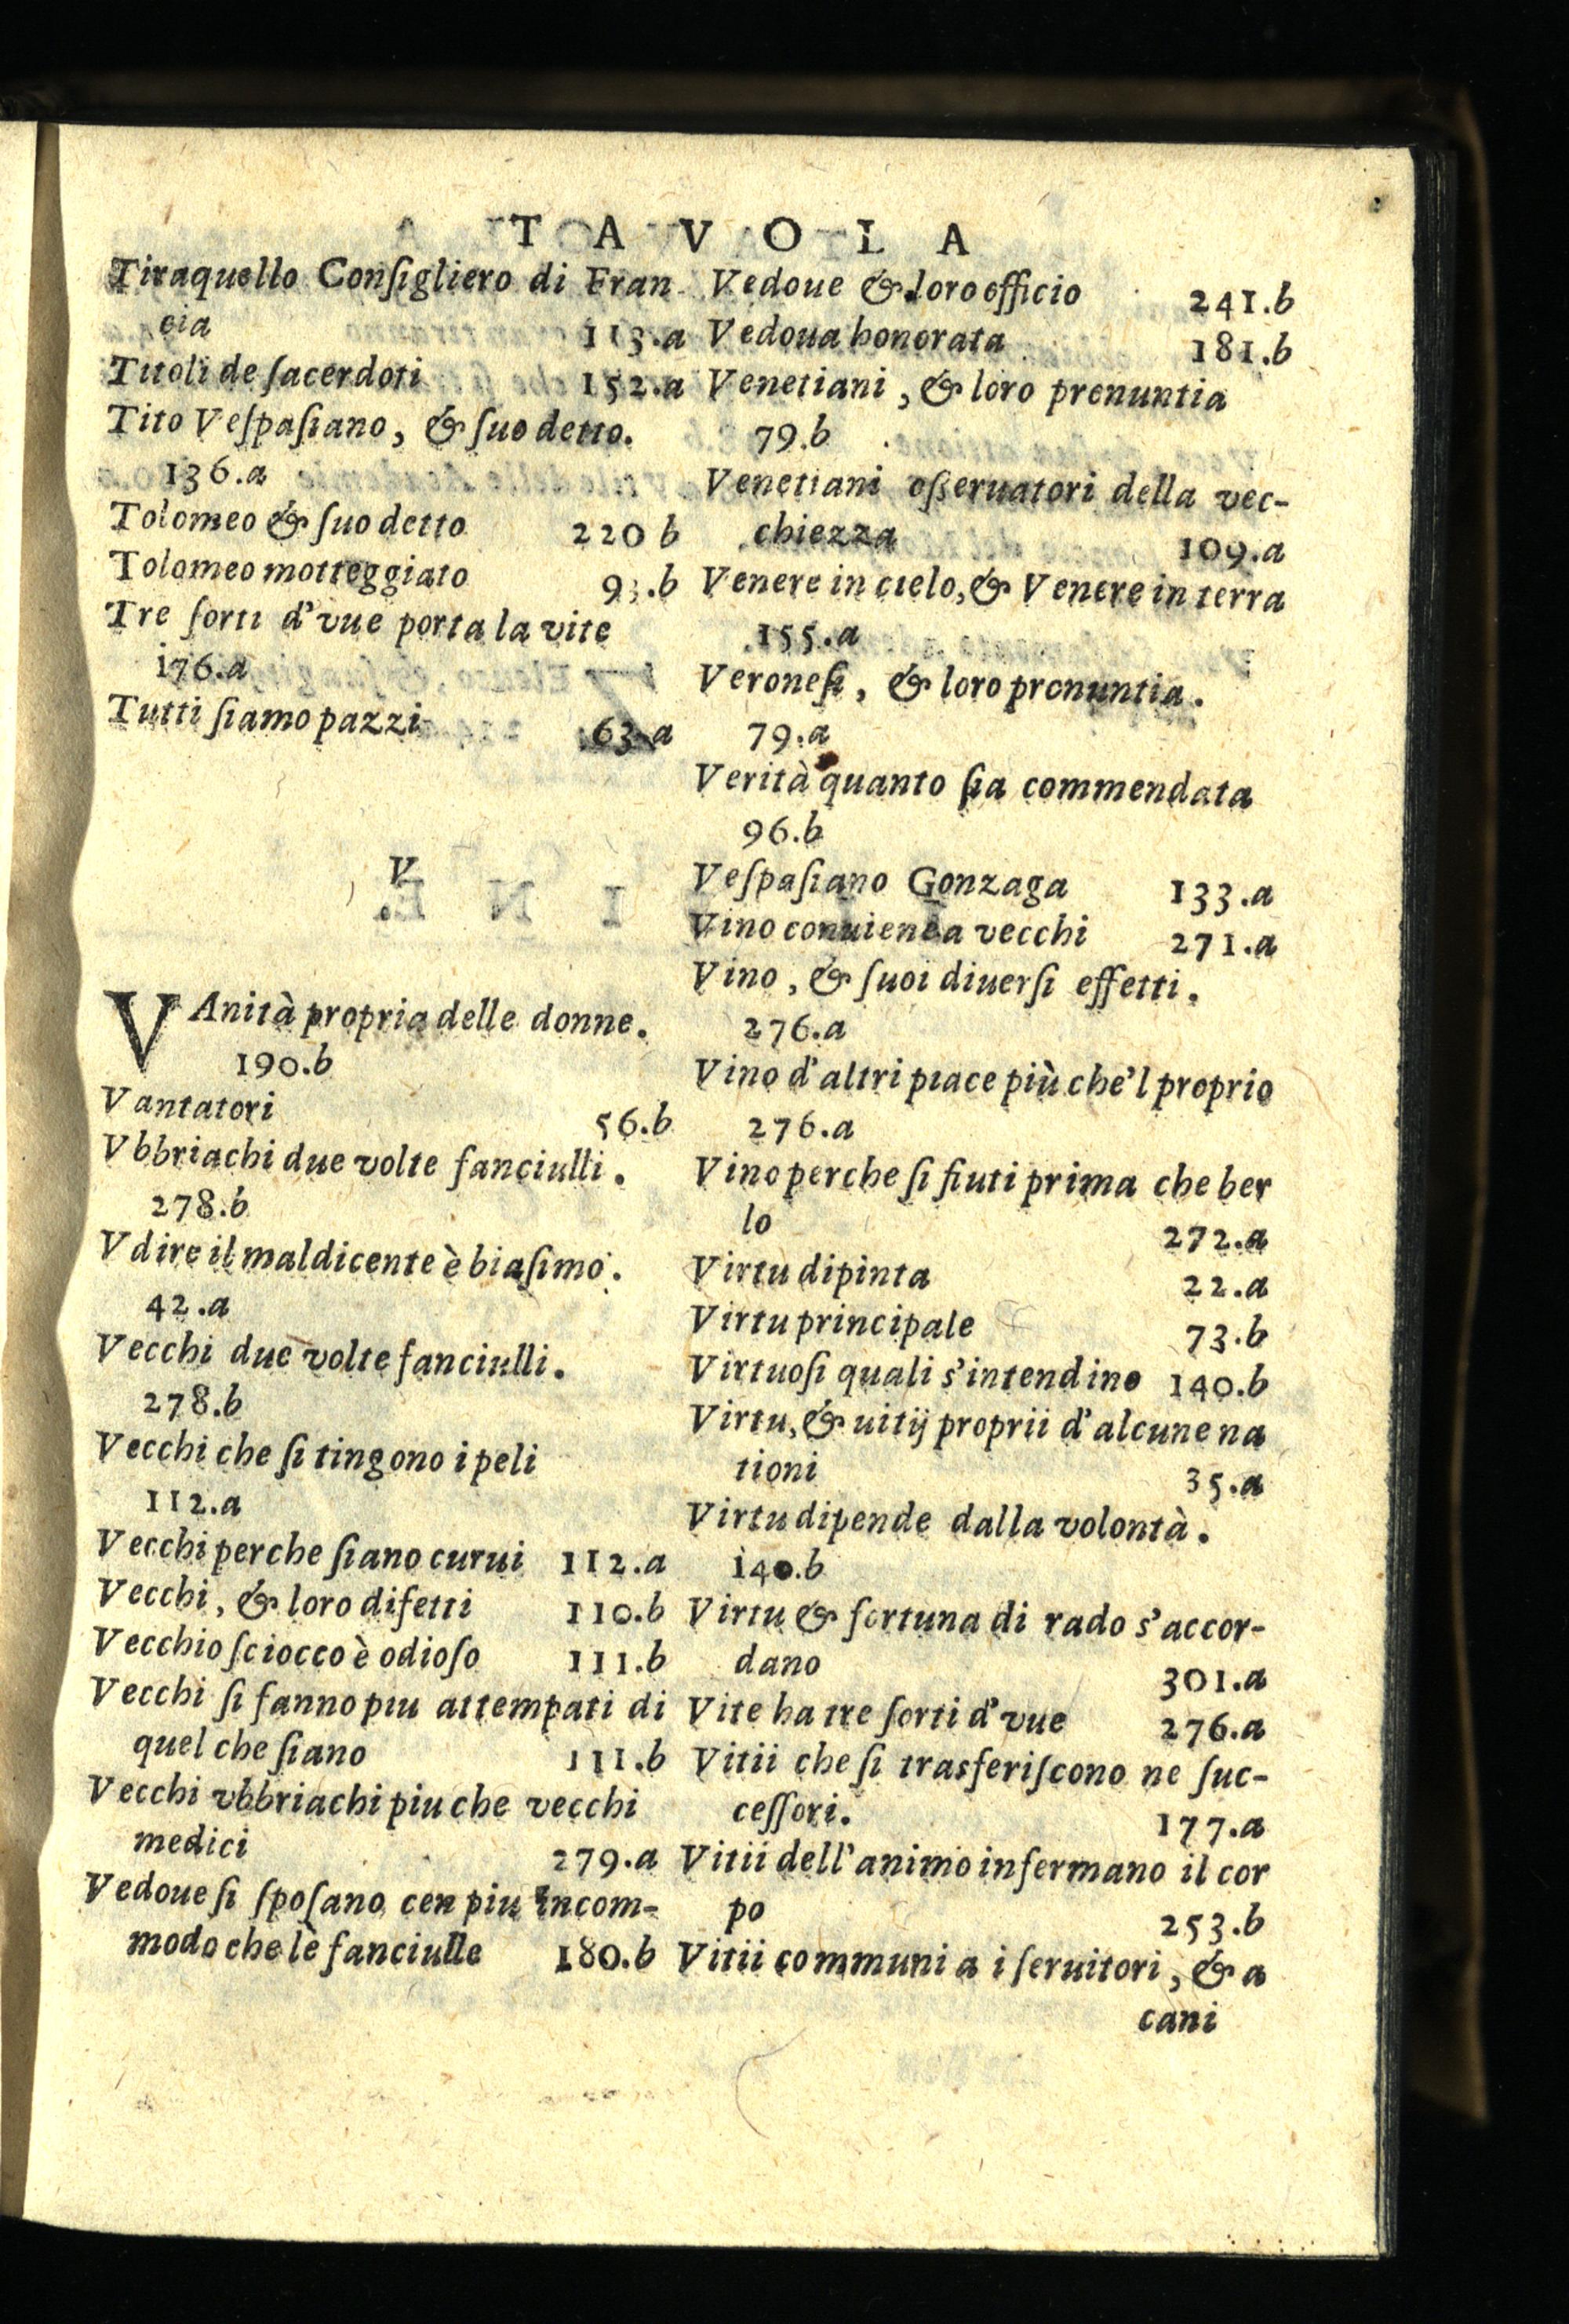 TAVOLA
Tiraquello Conſigliero di Fran
cia 113.a
Titoli de ſacerdoti 152.a
Tito Veſpaſiano, & ſuo detto.
136.a
Tolomeo & ſuo detto 220 b
Tolomeo motteggiato 93.b
Tre ſorti d'vue porta la vite
176.a
Tutti ſiamo pazzi 63.a
V
VAnità propria delle donne.
190.b
Vantatori 56.b
Vbbriachi due volte fanciulli.
278.b
Vdire il maldicente è biaſimo.
42.a
Vecchi due volte fanciulli.
278.b
Vecchi che ſi tingono i peli
112.a
Vecchi perche ſiano curui 112.a
Vecchi, & loro difetti 110.b
Vecchio ſciocco è odioſo 111.b
Vecchi ſi fanno piu attempati di
quel che ſiano 111.b
Vecchi vbbriachi piu che vecchi
medici 279.a
Vedoue ſi ſpoſano con piu incom-
modo che le fanciulle 180.b
Vedoue & loro officio 241.b
Vedoua honorata 181.b
Venetiani, & loro pronuntia
79.b
Venetiani oſſeruatori della vec-
chiezza 109.a
Venere in cielo, & Venere in terra
155.a
Veroneſi, & loro pronuntia.
79.a
Verità quanto ſia commendata
96.b
Veſpaſiano Gonzaga 133.a
Vino conuiene a vecchi 271.a
Vino, & ſuoi diuerſi effetti.
276.a
Vino d'altri piace più che'l proprio
276.a
Vino perche ſi fiuti prima che ber
lo 272.a
Virtu dipinta 22.a
Virtu principale 73.b
Virtuoſi quali s'intendino 140.b
Virtu, & uitij proprii d'alcune na
tioni 35.a
Virtu dipende dalla volontà.
140.b
Virtu & fortuna di rado s'accor-
dano 301.a
Vite ha tre ſorti d'vue 276.a
Vitii che ſi trasferiſcono ne ſuc-
ceſſori. 177.a
Vitii dell'animo infermano il cor
po 253.b
Vitii communi a i ſeruitori, & a
cani